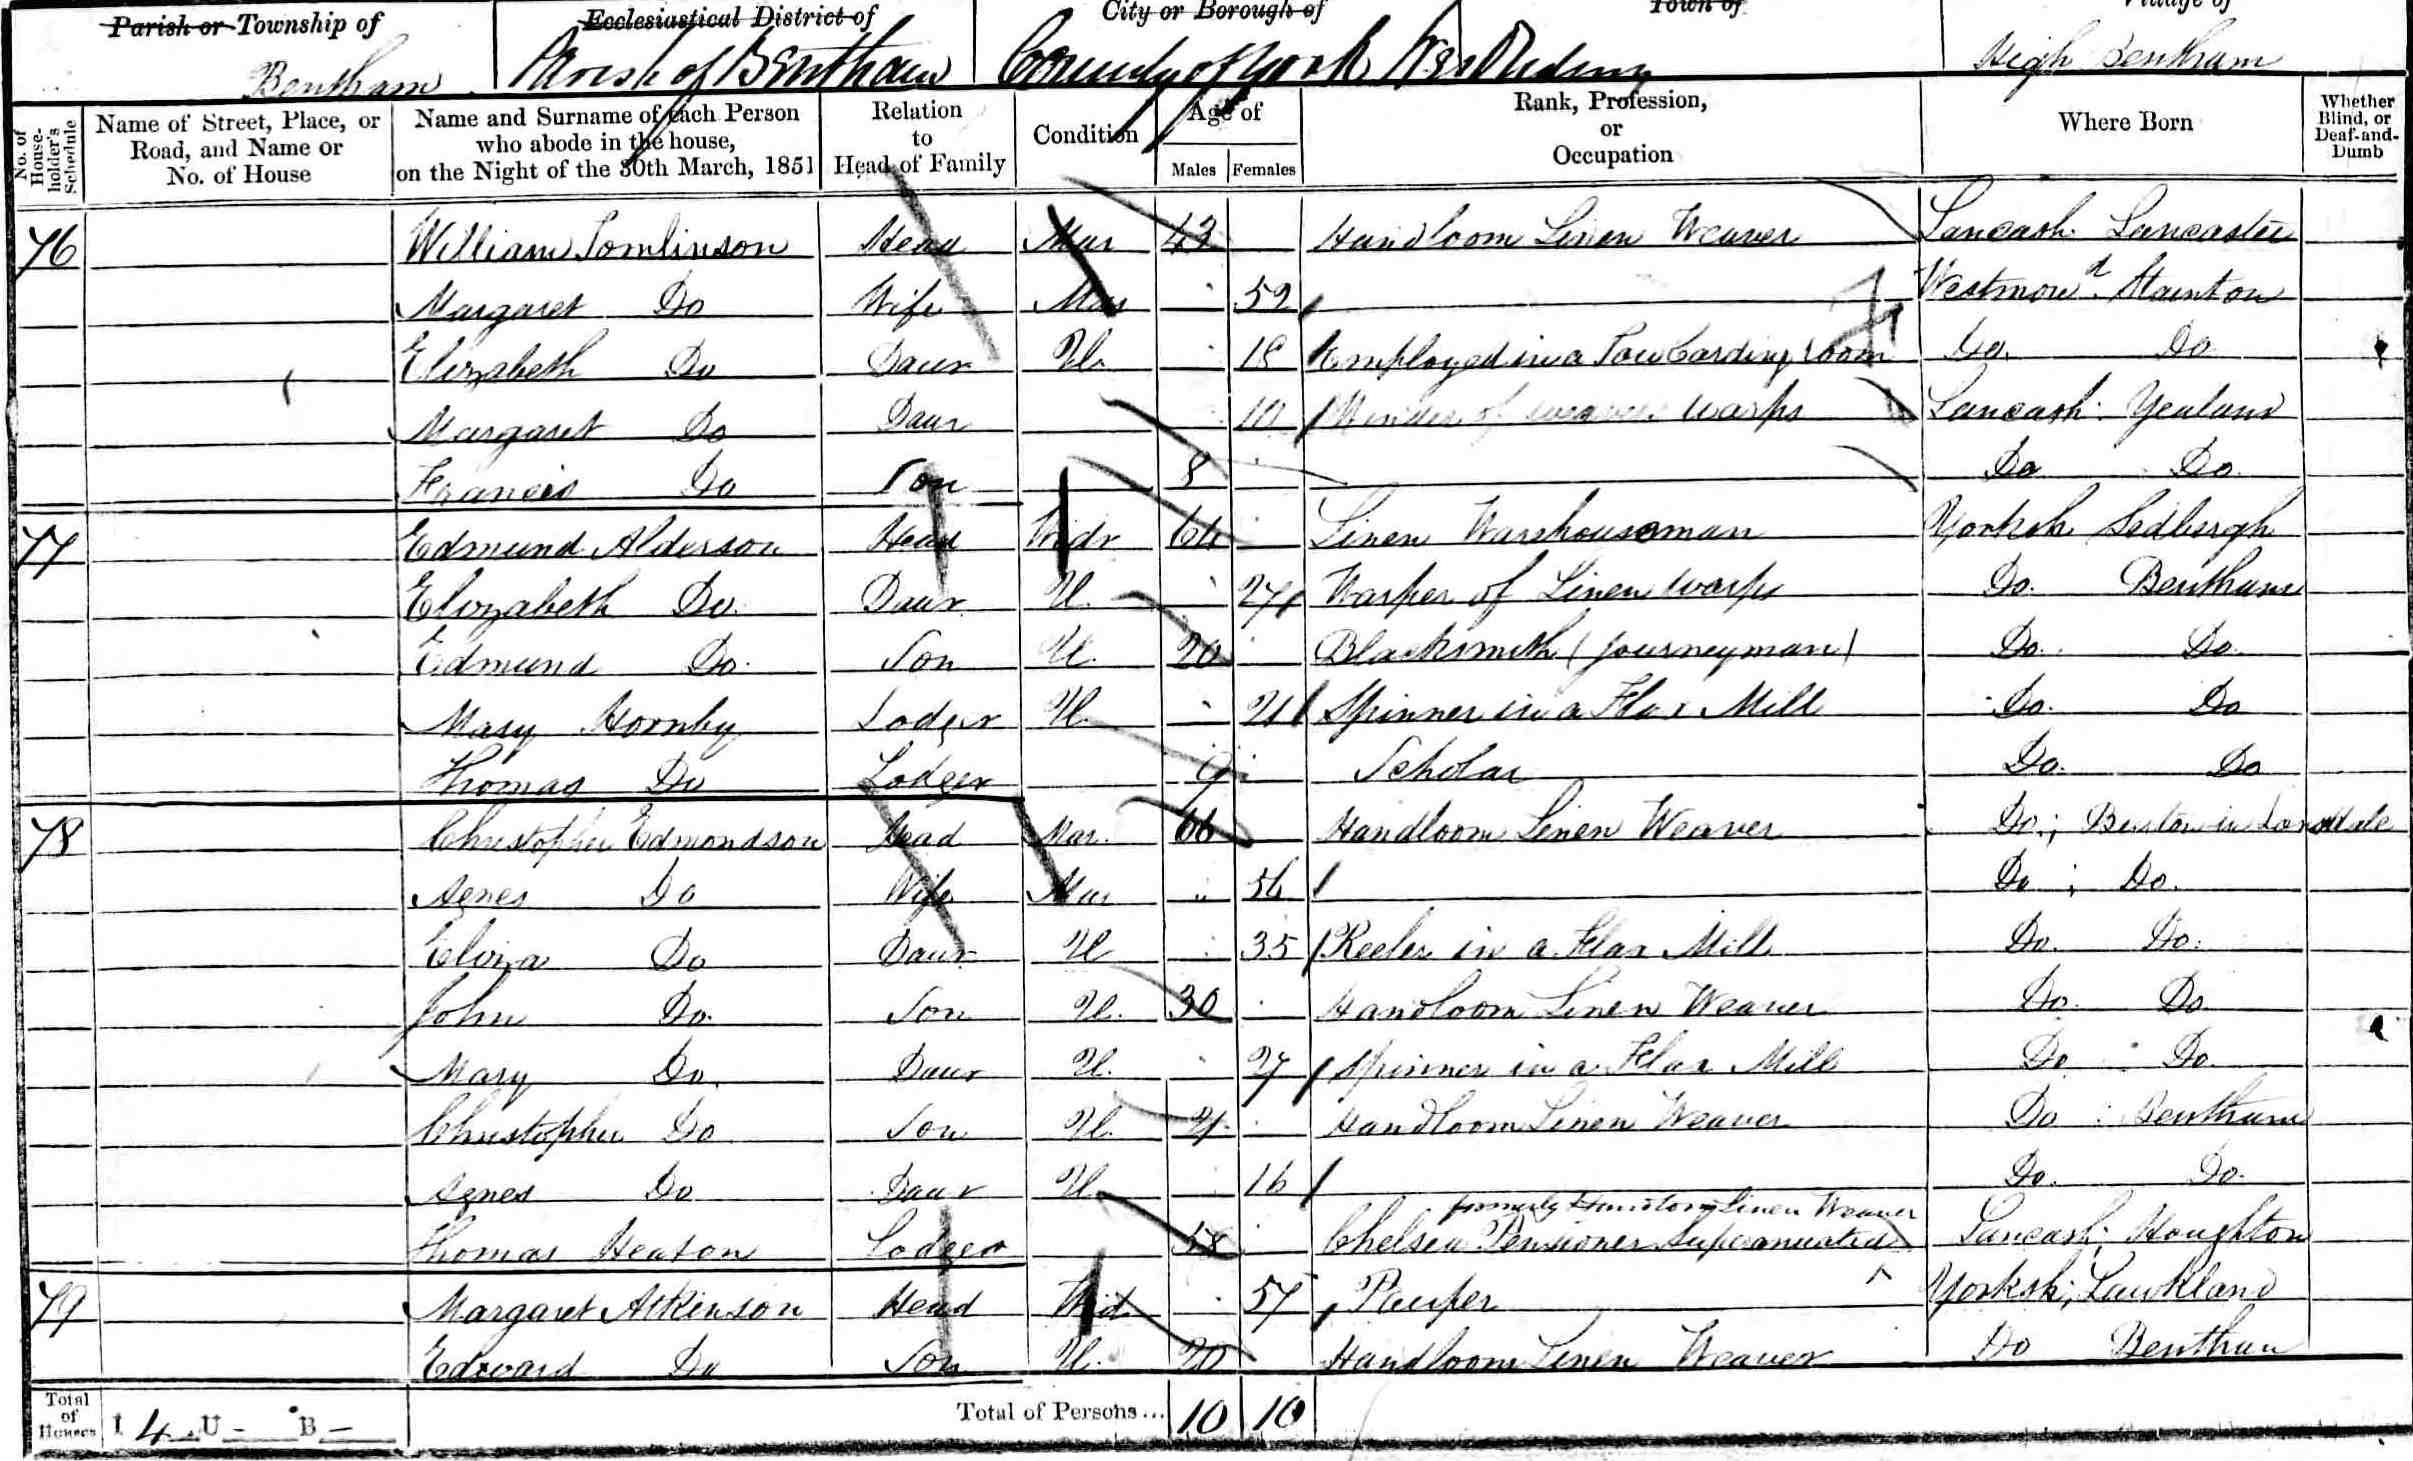 Parish or Township of Ecclesiastical District of City or Borough of Town of Village of
Bentham Parish of Bentham County of York West Riding High Bentham
No. of House-holder's Schedule
Name of Street, Place, or Road, and Name or No. of House
Name and Surname of each Person who abode in the house, on the Night of the 30th March, 1851
Relation to Head of Family
Condition
Age of
Males Females
Rank, Profession, or Occupation
Where Born
Whether Blind, or Deaf-and-Dumb
76 William Tomlinson Head Mar 43 Handloom Linen Weaver Lancash. Lancaster
Margaret Do Wife Mar 52 Westmord. Stainton
Elizabeth Do Daur U. 18 Employed in a Tow Carding room Do. Do
Margaret Do Daur 10 Winder of warps Lancash. Yealand
Francis Do Son 8 Do Do.
77 Edmund Alderson Head Widr 64 Linen Warehouseman Yorksh Sedbergh
Elizabeth Do. Daur U. 27 Warper of Linen warps Do. Bentham
Edmund Do. Son U. 20 Blacksmith (journeyman) Do. Do.
Mary Hornby Lodger U. 21 Spinner in a Flax Mill Do. Do
Thomas Do Lodger 9 Scholar Do. Do
78 Christopher Edmondson Head Mar. 66 Handloom Linen Weaver Do; Burton in Lonsdale
Agnes Do Wife Mar 56 Do; Do.
Eliza Do Daur U 35 Reeler in a Flax Mill Do. Do.
John Do. Son U. 30 Handloom Linen Weaver Do. Do
Mary Do. Daur U. 27 Spinner in a Flax Mill Do Do.
Christopher Do Son U. 21 Handloom Linen Weaver Do Bentham
Agnes Do Daur U. 16 Do. Do.
formerly Handloom Linen Weaver
Thomas Heaton Lodger 58 Chelsea Pensioner Superanuated Lancash; Houghton
79 Margaret Atkinson Head Wid. 57 Pauper Yorksh; Lawkland
Edward Do Son U. 20 Handloom Linen Weaver Do Bentham
Total of Houses I 4 U - B - Total of Persons... 10 10